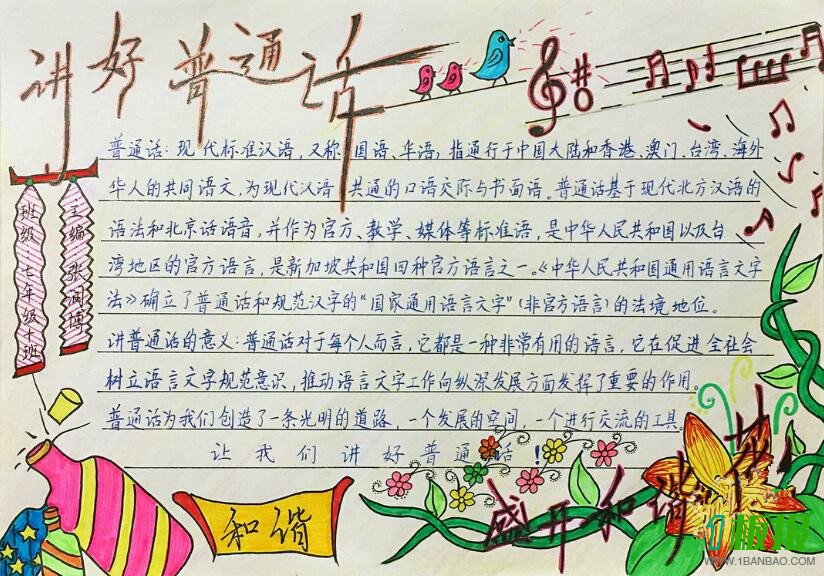 讲好普通话
普通话：现代标准汉语，又称国语、华语，指通行于中国大陆和香港、澳门、台湾、海外
华人的共同语文，为现代汉语共通的口语交际与书面语。普通话基于现代北方汉语的
语法和北京话语音，并作为官方、教学、媒体等标准语，是中华人民共和国以及台
湾地区的官方语言，是新加坡共和国四种官方语言之一。《中华人民共和国通用语言文字
法》确立了普通话和规范汉字的“国家通用语言文字”（非官方语言）的法境地位。
讲普通话的意义：普通话对于每个人而言，它都是一种非常有用的语言，它在促进全社会
树立语言文字规范意识，推动语言文字工作向纵深发展方面发挥了重要的作用。
普通话为我们创造了一条光明的道路，一个发展的空间，一个进行交流的工具。
让我们讲好普通话！
主编 张润博
班级 七年级十班
和谐
盛开和谐之花
WWW.1BANBAO.COM